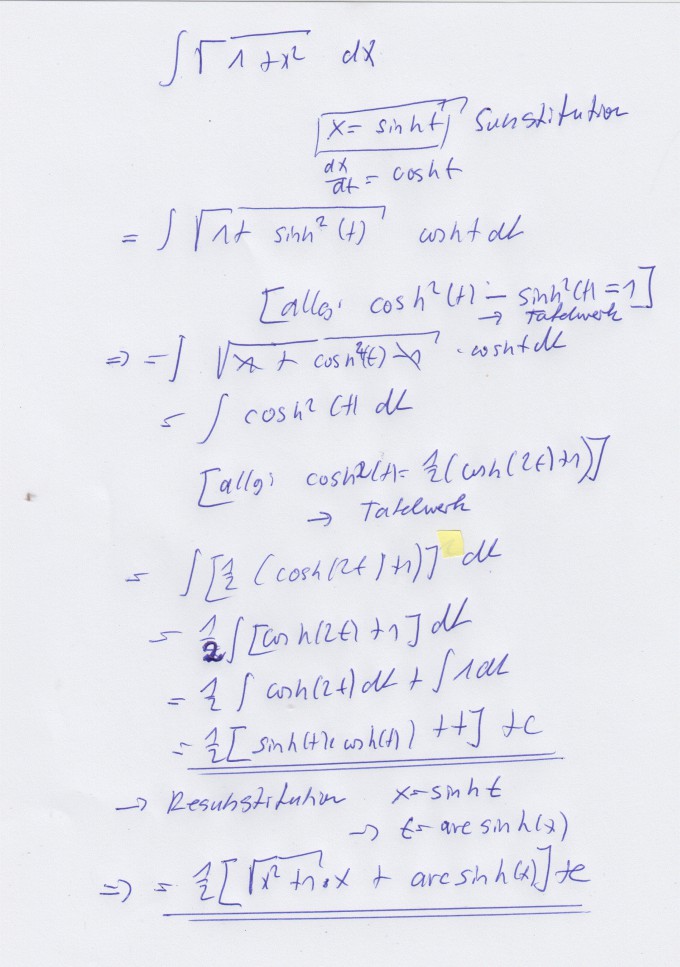 ∫ √(1 + x²) dx
x = sinh t Substitution
dx/dt = cosh t
= ∫ √(1 + sinh²(t)) cosh t dt
[allg: cosh²(t) - sinh²(t) = 1]
→ Tafelwerk
=> = ∫ √(1 + cosh²(t) - 1) · cosh t dt
= ∫ cosh²(t) dt
[allg: cosh²(t) = 1/2 (cosh(2t) + 1)]
→ Tafelwerk
= ∫ [1/2 (cosh(2t) + 1)] dt
= 1/2 ∫ [cosh(2t) + 1] dt
= 1/2 ∫ cosh(2t) dt + ∫ 1 dt
= 1/2 [sinh(t) · cosh(t) + t] + c
→ Resubstitution x = sinh t
→ t = arc sinh(x)
=> = 1/2 [√(x² + 1) · x + arc sinh(x)] + c